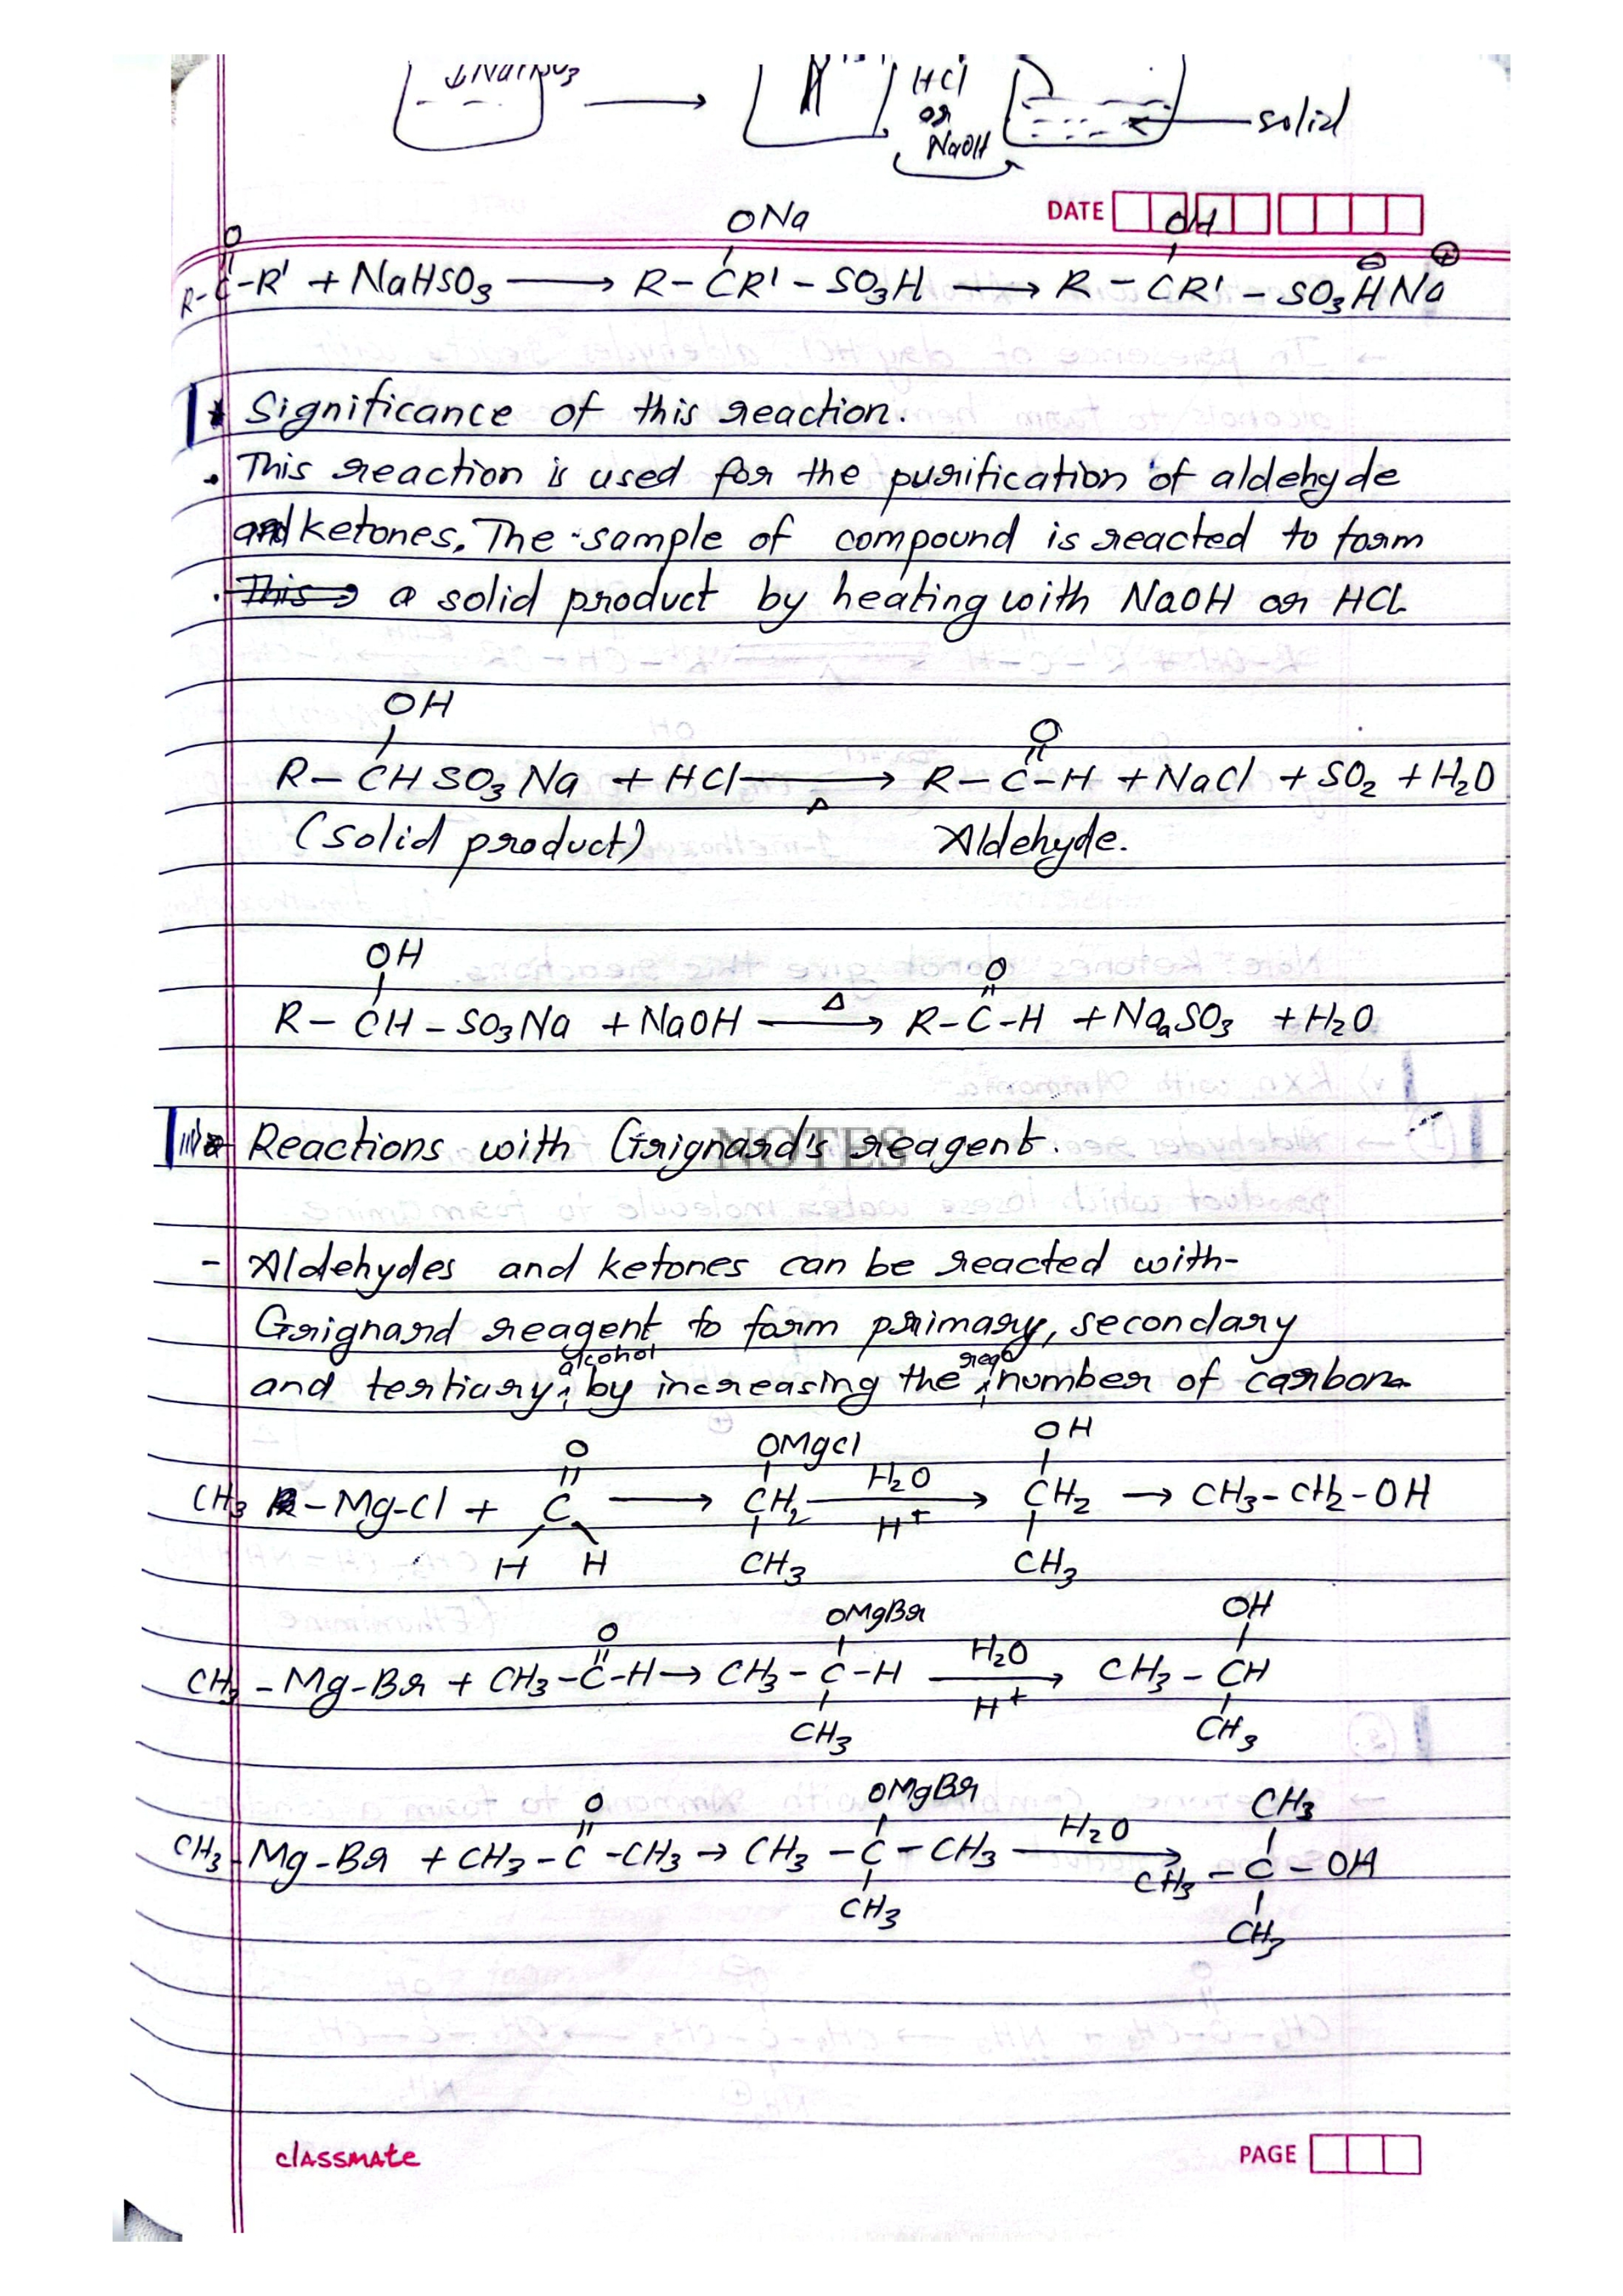 ↓NaHSO3
HCl
or
NaOH
solid
DATE
O ONa OH
R-C-R' + NaHSO3 ⟶ R-CR'-SO3H ⟶ R-CR'-SO3H⊖ Na⊕
Significance of this reaction.
. This reaction is used for the purification of aldehyde
and ketones. The sample of compound is reacted to form
. This a solid product by heating with NaOH or HCl
OH O
R-CHSO3Na + HCl ⟶ R-C-H + NaCl + SO2 + H2O
Δ
(solid product) Aldehyde.
OH O
R-CH-SO3Na + NaOH ⟶ R-C-H + Na2SO3 + H2O
Δ
Reactions with Grignard's reagent.
NOTES
- Aldehydes and ketones can be reacted with-
Grignard reagent to form primary, secondary
alcohol
and tertiary, by increasing the number of carbon
O OMgCl OH
CH3 -Mg-Cl + C ⟶ CH2 H2O ⟶ CH2 → CH3-CH2-OH
H+
H H CH3 CH3
O OMgBr OH
CH3-Mg-Br + CH3-C-H → CH3-C-H H2O ⟶ CH3-CH
H+
CH3 CH3
O OMgBr CH3
CH3-Mg-Br + CH3-C-CH3 → CH3-C-CH3 H2O ⟶ CH3-C-OH
CH3 CH3
classmate
PAGE